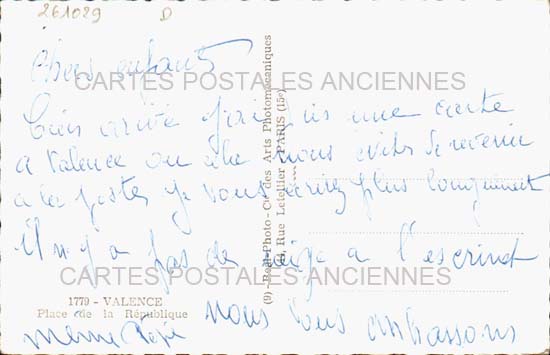 261029 D
Chers enfants
CARTES POSTALES ANCIENNES
Bien arrivé j'ai pris une carte
a Valence ou elle nous evite de revenir
a la poste je vous ecrirez plus longuement
Il n'y a pas de neige a l'escrinet
CARTES POSTALES ANCIENNES
1779 - VALENCE
Place de la République
nous vous embrassons
meme Pepé
(9) - Real-Photo - Cie des Arts Photomécaniques
Rue Letellier - PARIS (15e)